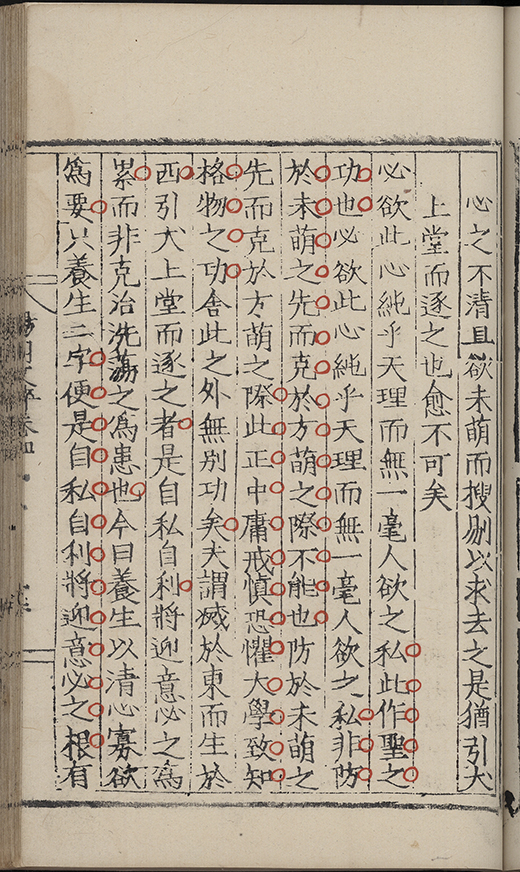 心之不清且欲未萌而搜剔以求去之是猶引犬
上堂而逐之也愈不可矣
必欲此心純乎天理而無一毫人欲之私此作聖之
功也必欲此心純乎天理而無一毫人欲之私非防
於未萌之先而克於方萌之際不能也防於未萌之
先而克於方萌之際此正中庸戒慎恐懼大學致知
格物之功舍此之外無別功矣夫謂滅於東而生於
西引犬上堂而逐之者是自私自利將迎意必之為
累而非克治洗蕩之為患也今曰養生以清心寡欲
為要只養生二字便是自私自利將迎意必之根有